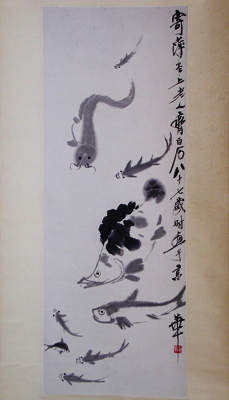 寄萍堂上老人齊白石八十七歲時畫于京
華